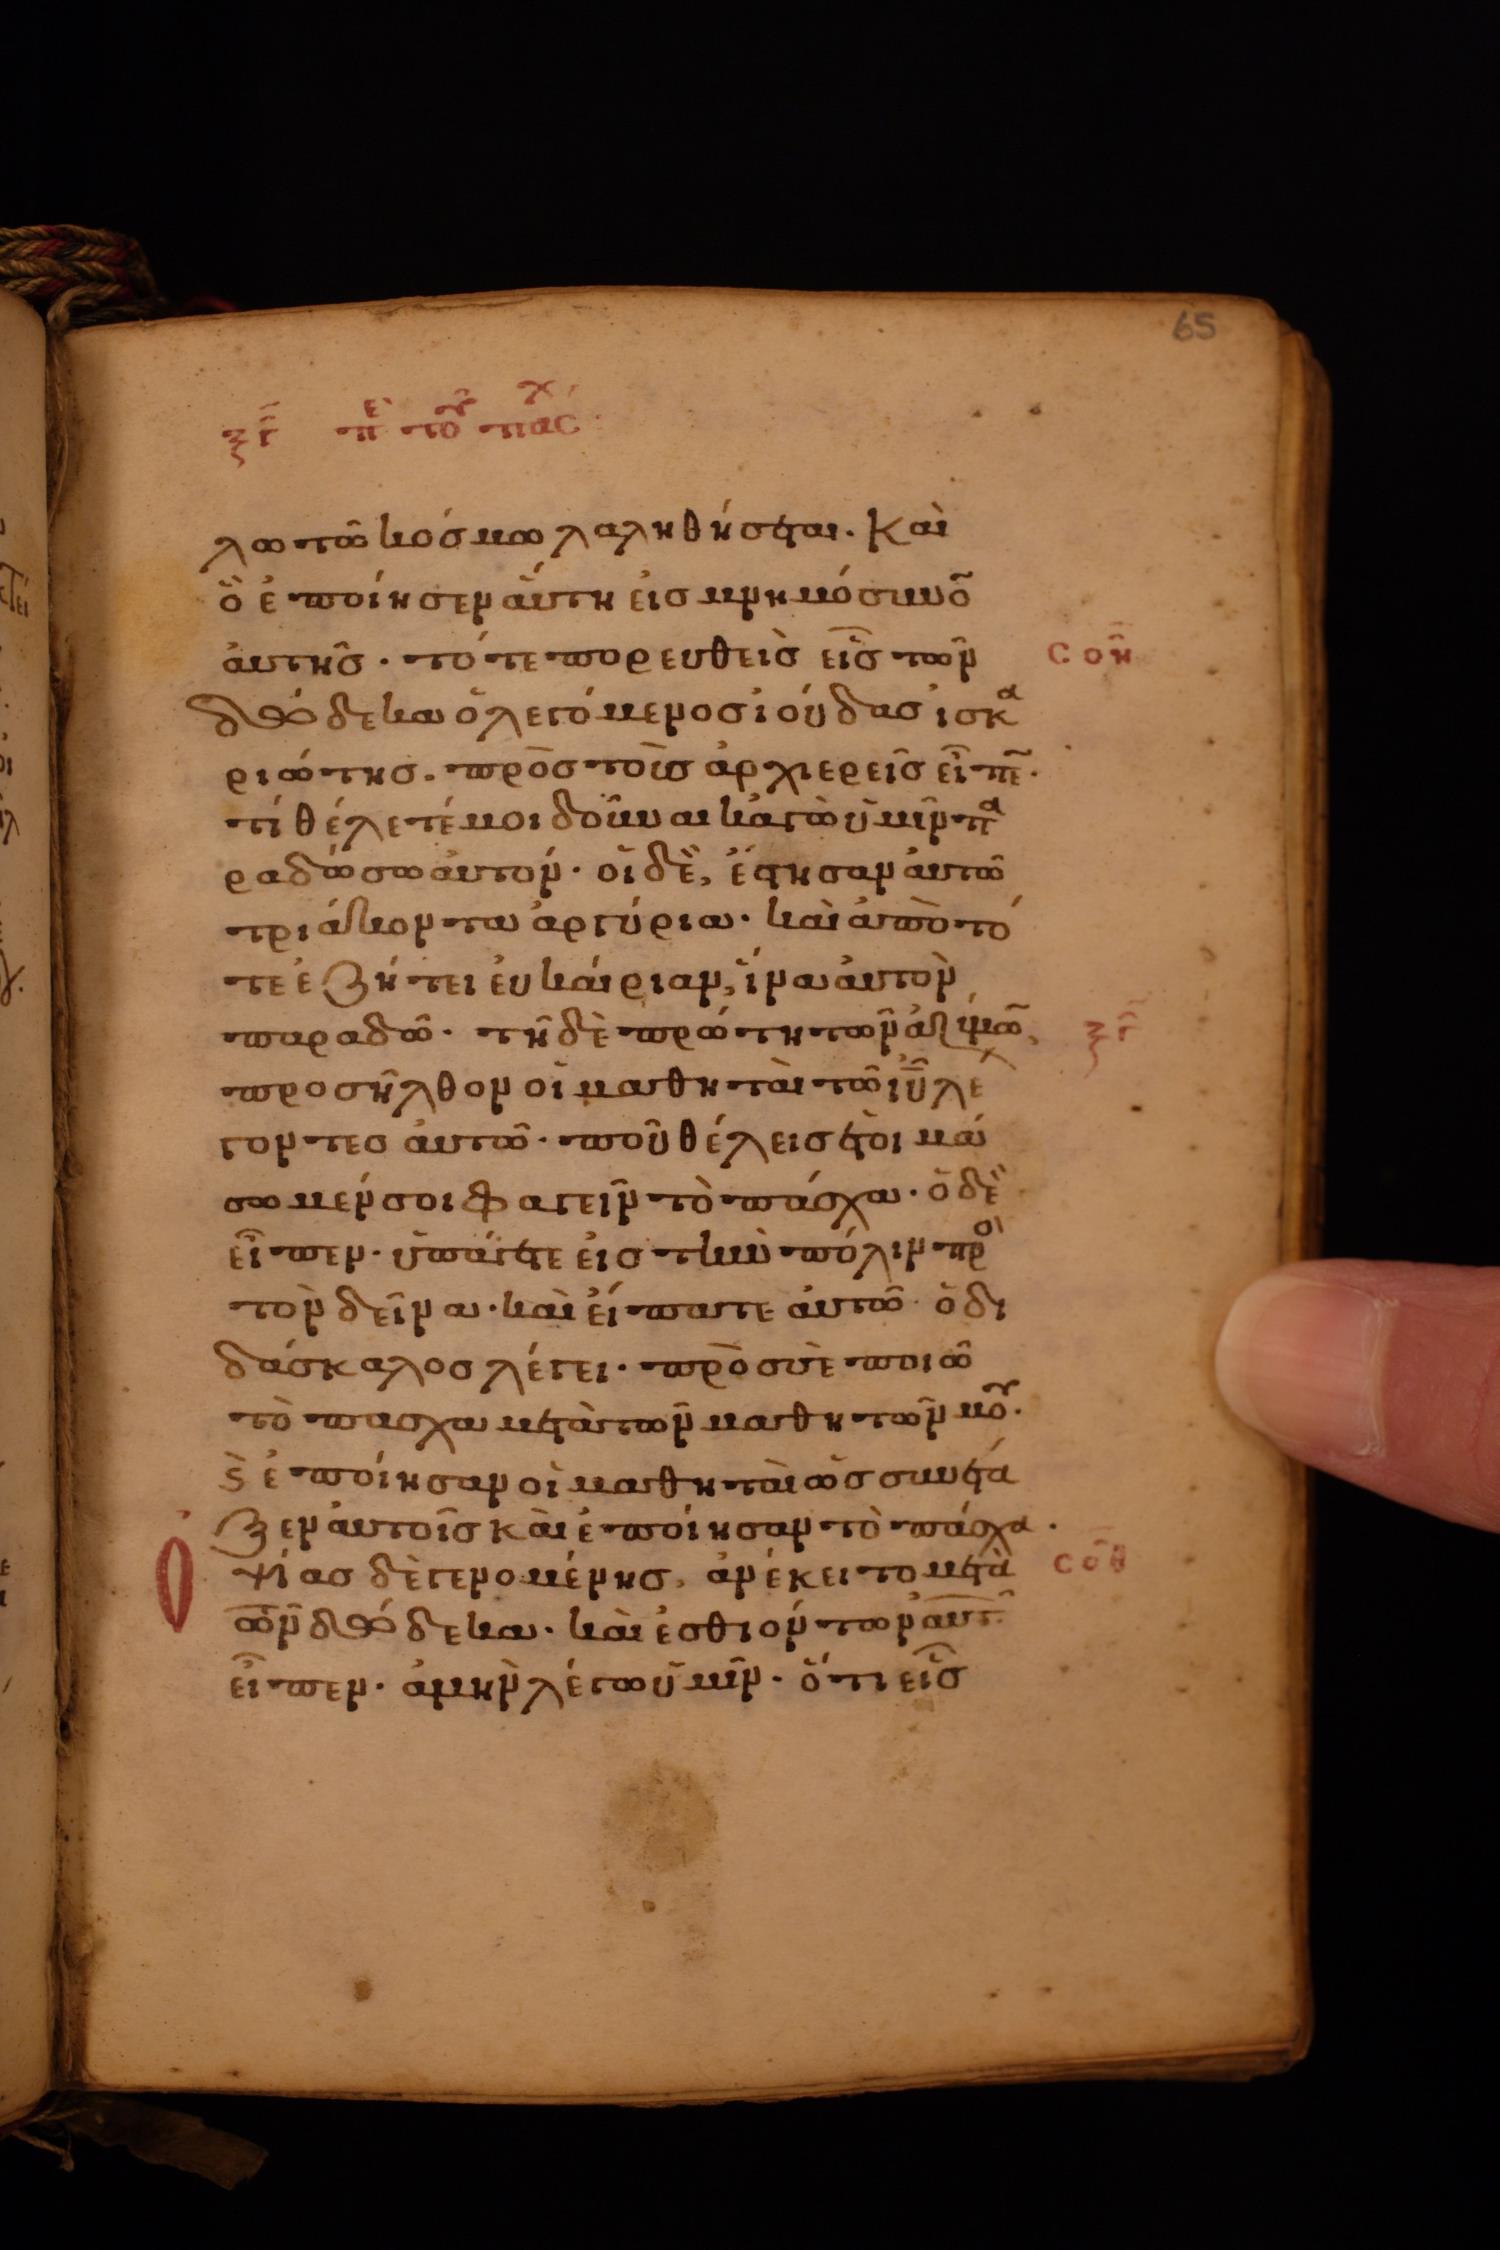 65
ξγ πε του πασχ
λω τῶ κόσμω λαληθήσεται. Καὶ
ὃ ἐποίησεν ἅυτη ἐισ μνημόσυνο
ἀυτῆσ. τότε πορευθεὶσ εἷσ τῶν
δώδεκα ὁ λεγόμενοσ ἰούδασ ἰσκα
ριώτησ. πρὸσ τοὺσ ἀρχιερεῖσ εἶπε.
τί θέλετέ μοι δοῦναι κἀγὼ ὑμῖν πα
ραδώσω ἀυτόν. οἱ δὲ, ἔστησαν ἀυτῶ
τριάκοντα ἀργύρια. καὶ ἀπὸ τό
τε ἐζήτει ἐυκάιριαν, ἵνα ἀυτὸν
παραδῶ. τῆ δὲ πρώτη τῶν ἀζύμω,
προσῆλθον οἱ μαθηταὶ τῶ ιῦ λέ
γοντεσ ἀυτῶ. ποῦ θέλεισ ἑτοιμά
σωμέν σοι φαγεῖν τὸ πάσχα. ὁ δὲ
εἶπεν. ὑπάγετε ἐισ τὴν πόλιν προ
τὸν δεῖνα. καὶ ἐίπατε ἀυτῶ ὁ δι
δάσκαλοσ λέγει. πρὸσ σὲ ποιῶ
τὸ πασχα μετὰ τῶν μαθητῶν μου.
ϛ ἐποίησαν οἱ μαθηταὶ ὡσ συνέτα
ξεν ἀυτοῖσ κὰι ἐποίησαν τὸ πάσχα.
Οψίασ δὲ γενομένησ, ἀνέκειτο μετὰ
τῶν δώδεκα. καὶ ἐσθιόντων ἀυτ
εἶπεν. ἀμὴν λέγω ὑμῖν. ὅτι εἷσ
σοη
ξγ
σοθ